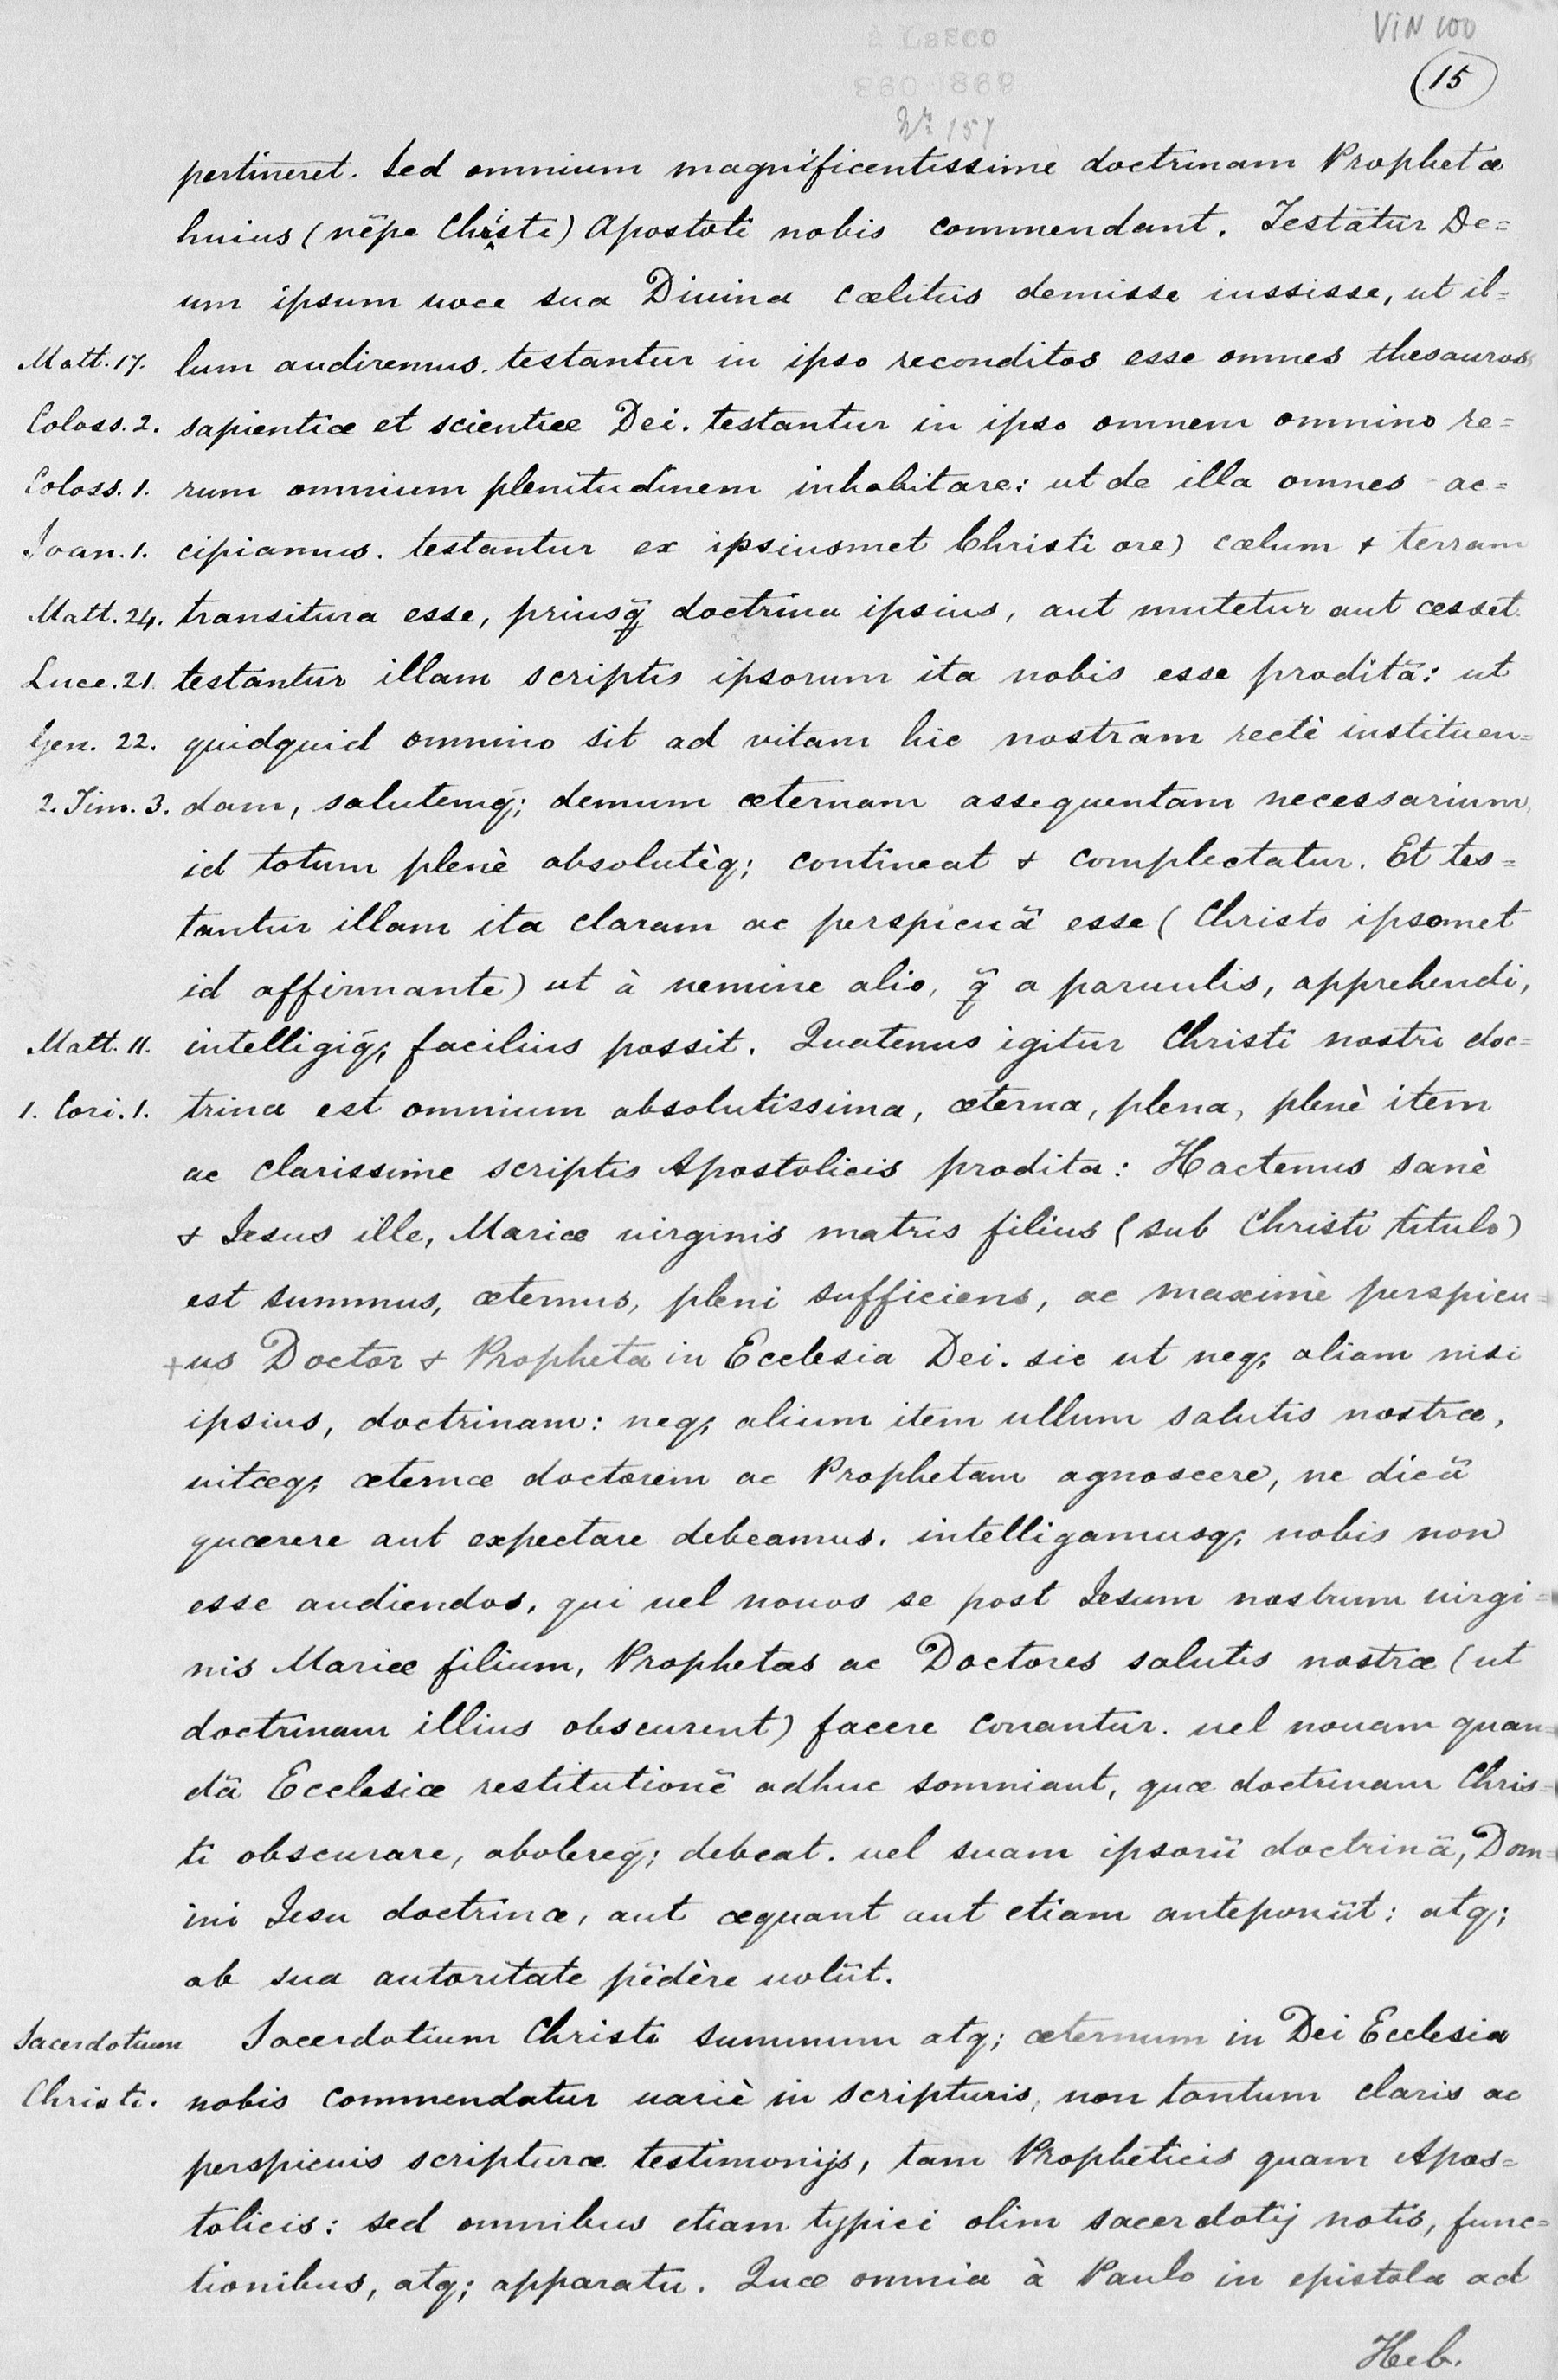 VIN 100
à Lasco
15
860/869
Nr. 157
pertineret. Sed omnium magnificentissimè doctrinam Prophetæ
huius (nēpe Christi) Apostoli nobis commendant. Testātur De=
um ipsum uoce sua Diuina cælitus demisse iussisse, ut il=
Matt. 17. lum audiremus. testantur in ipso reconditos esse omnes thesauros
Coloss. 2. sapientiæ et scientiæ Dei. testantur in ipso omnem omnino re=
Coloss. 1. rum omnium plenitudinem inhabitare: ut de illa omnes ac=
Joan. 1. cipiamus. testantur ex ipsiusmet Christi ore) cælum & terram
Matt. 24. transitura esse, priusq̃ doctrina ipsius, aut mutetur aut cesset.
Luce. 21. testantur illam scriptis ipsorum ita nobis esse proditā: ut
Gen. 22. quidquid omnino sit ad vitam hic nostram rectè instituen=
2. Tim. 3. dam, salutemq́; demum æternam assequentam necessarium,
id totum plenè absolutèq; contineat & complectatur. Et tes=
tantur illam ita claram ac perspicuā esse (Christo ipsomet
id affirmante) ut à nemine alio, q̃ a paruulis, apprehendi,
Matt. 11. intelligiq́; facilius possit. Quatenus igitur Christi nostri doc=
1. Cori. 1. trina est omnium absolutissima, æterna, plena, plenè item
ac clarissime scriptis Apostolicis prodita: Hactenus sanè
& Jesus ille, Mariæ uirginis matris filius (sub Christi titulo)
est summus, æternus, pleni sufficiens, ac maximè perspicu=
+us Doctor & Propheta in Ecclesia Dei. sic ut neq; aliam nisi
ipsius, doctrinam: neq; alium item ullum salutis nostræ,
uitæq; æternæ doctorem ac Prophetam agnoscere, ne dicā
quærere aut expectare debeamus. intelligamusq; nobis non
esse audiendos, qui uel nouos se post Jesum nostrum uirgi=
nis Mariæ filium, Prophetas ac Doctores salutis nostræ (ut
doctrinam illius obscurent) facere conantur. uel nouam quan=
dā Ecclesiæ restitutionē adhuc somniant, quæ doctrinam Chris=
ti obscurare, abolereq́; debeat. uel suam ipsorū doctrinā, Dom=
ini Jesu doctrinæ, aut æquant aut etiam anteponūt: atq;
ab sua autoritate pēdère uolūt.
Sacerdotium Sacerdotium Christi summum atq; æternum in Dei Ecclesia
Christi. nobis commendatur uariè in scripturis, non tantum claris ac
perspicuis scripturæ testimonijs, tam Propheticis quam Apos=
tolicis: sed omnibus etiam typici olim sacerdotij notis, func=
tionibus, atq; apparatu. Quæ omnia à Paulo in epistola ad
Heb.